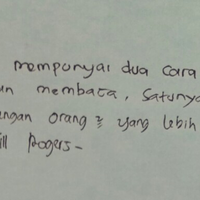 mempunyai dua cara
membaca, satunya
orang² yang lebih
Rogers-